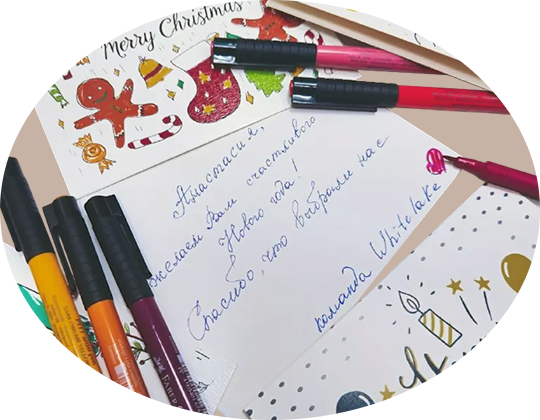 Merry Christmas
Анастасия,
желаем Вам счастливого
Нового года!
Спасибо, что выбрали нас
команда Whitelake